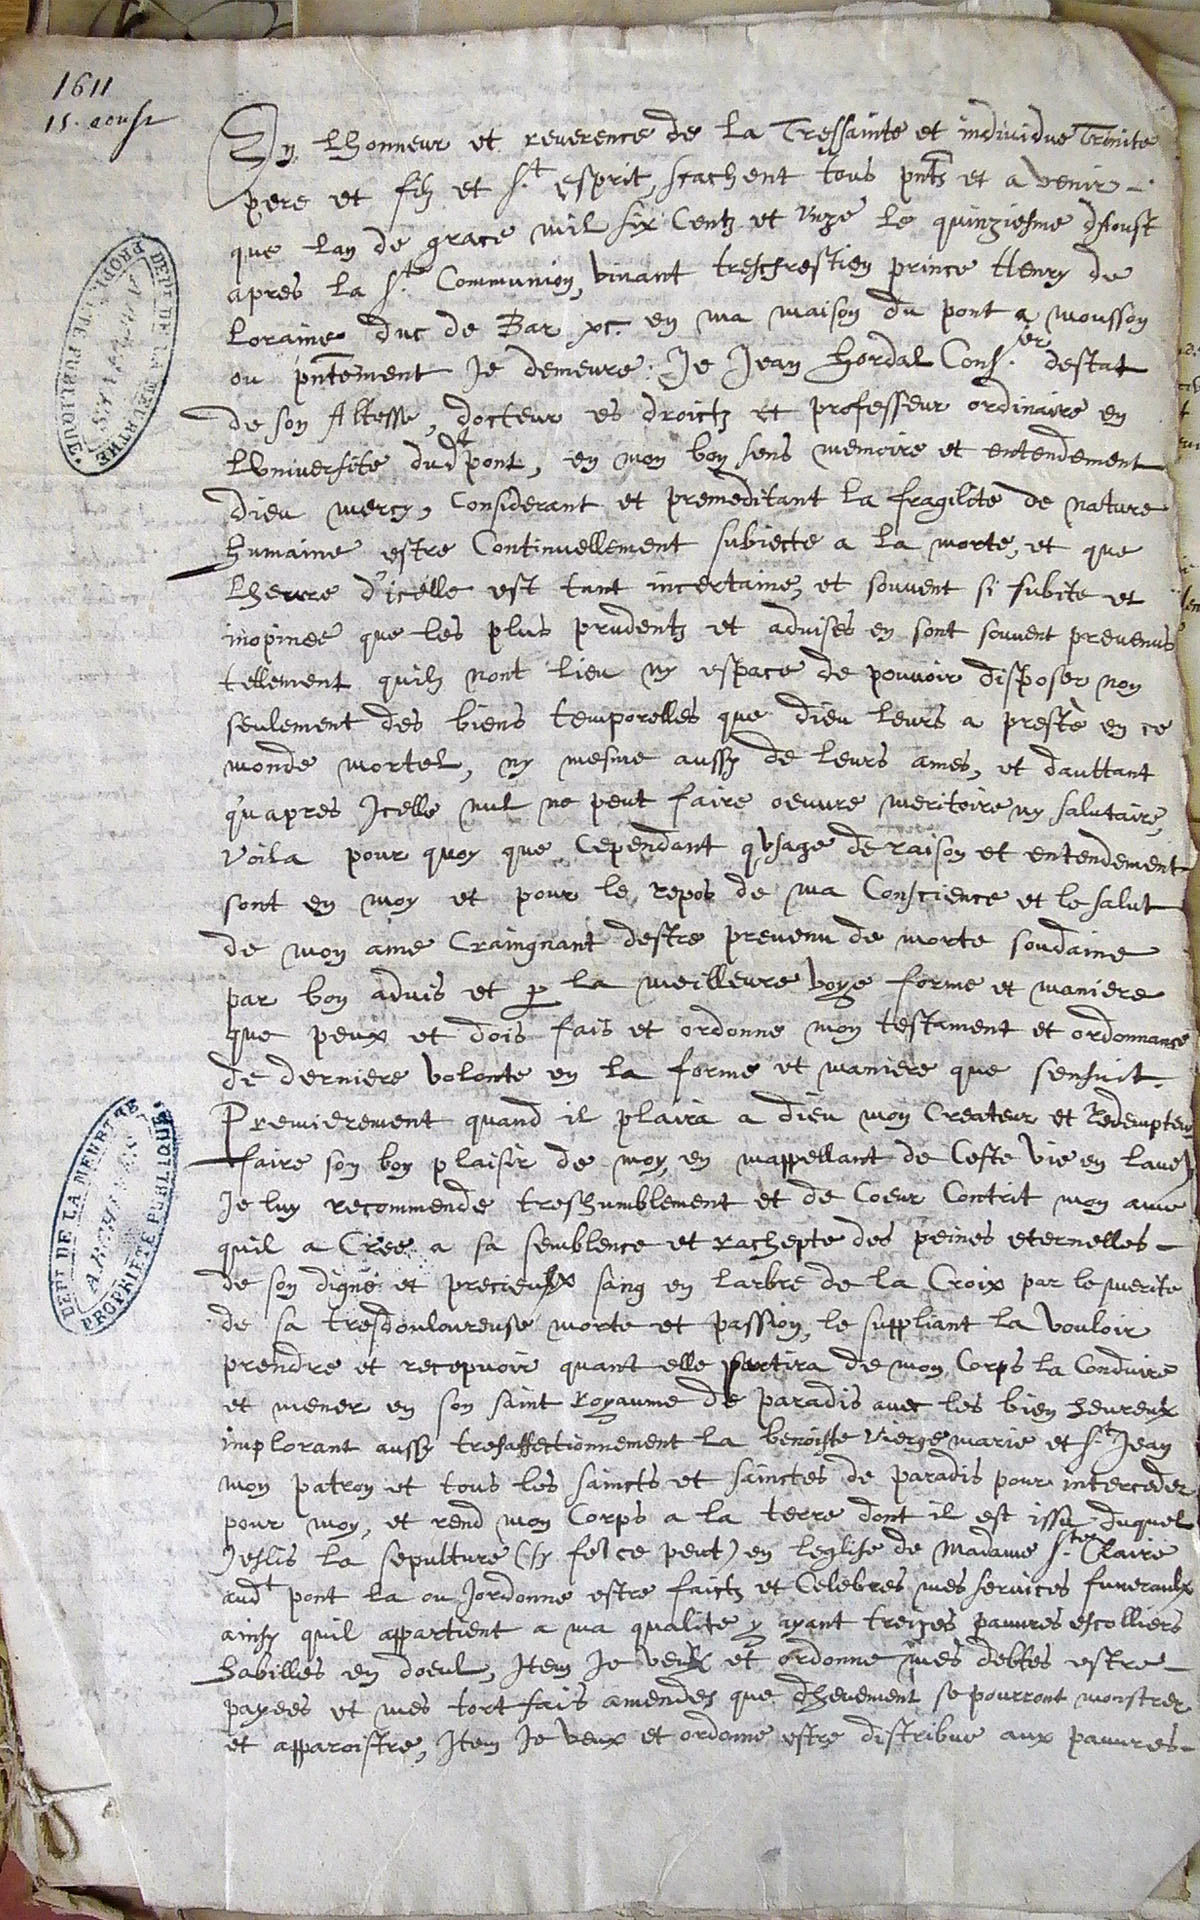 1611
15. aoust
En Lhonneur et reverence de La Tressainte et individue Trinite
pere et filz et St. esprit, scachent tous pntz et a venir
que lan de grace mil six Centz et Unze le quinziesme dAoust
apres la Ste. Communion, vivant treschrestien prince Henry de
Loraine duc de Bar &c. en ma maison du pont a mousson
ou pntement Je demeure: Je Jean Hordal Cons.er destat
de son Altesse, docteur es droictz et professeur ordinaire en
LUniversite dudt pont, en mon bon sens memoire et entendement
Dieu mercy, Considerant et premeditant la fragilite de nature
humaine estre Continuellement subiecte a la morte, et que
Lheure d'icelle est tant incertaine, et souvent si subite et
inopinee que les plus prudentz et advises en sont souvent prevenus
tellement quilz nont lieu ny espace de pouvoir disposer non
seulement des biens temporelles que dieu leurs a preste en ce
monde mortel, ny mesme aussy de leurs ames, et dauttant
quapres Icelle nul ne peut faire oeuvre meritoire ny salutaire,
Voila pour quoy que Cependant qusage de raison et entendement
sont en moy et pour le repos de ma Conscience et le salut
de mon ame Craingnant destre prevenu de morte soudaine
par bon advis et p la meilleure voye forme et maniere
que peux et dois fais et ordonne mon testament et ordonnance
de derniere volonte en la forme et maniere que sensuit.
Premierement quand il plaira a dieu mon Createur et Redempteur
faire son bon plaisir de moy en mappellant de Ceste vie en laue
Je luy recommende treshumblement et de Coeur Contrit mon ame
quil a Cree a sa semblence et rachepte des peines eternelles
de son digne et precieulx sang en larbre de la Croix par le merite
de sa tresdouloureuse morte et passion, le suppliant la vouloir
prendre et recepvoir quant elle partira de mon Corps la Conduire
et mener en son saint Royaume de paradis avec les bien heureux
implorant aussy tresaffectionnement la benoiste Vierge marie et St. Jean
mon patron et tous les saincts et sainctes de paradis pour interceder
pour moy, et rend mon Corps a la terre dont il est issu duquel
Jeslis la sepulture (sy fe ce peut) en leglise de Madame Ste. Claire
audt pont la ou Jordonne estre faictz et Celebres mes services funeraulx
ainsy quil appartient a ma qualite y ayant treizes pauvres escolliers
habilles en doeul, Item Je veux et ordonne mes debtes estre
payees et mes tort fais amendes que dhevement se pourront monstrer
et apparoistre, Item Je veux et ordonne estre distribue aux pauvres
DEPT DE LA MEURTHE
ARCHIVES
PROPRIETE PUBLIQUE
DEPT DE LA MEURTHE
ARCHIVES
PROPRIETE PUBLIQUE